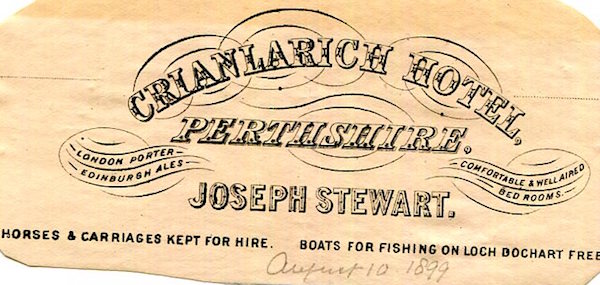 CRIANLARICH HOTEL,
PERTHSHIRE.
LONDON PORTER
EDINBURGH ALES
COMFORTABLE & WELL AIRED
BED ROOMS.
JOSEPH STEWART.
HORSES & CARRIAGES KEPT FOR HIRE. BOATS FOR FISHING ON LOCH DOCHART FREE
August 10 1899